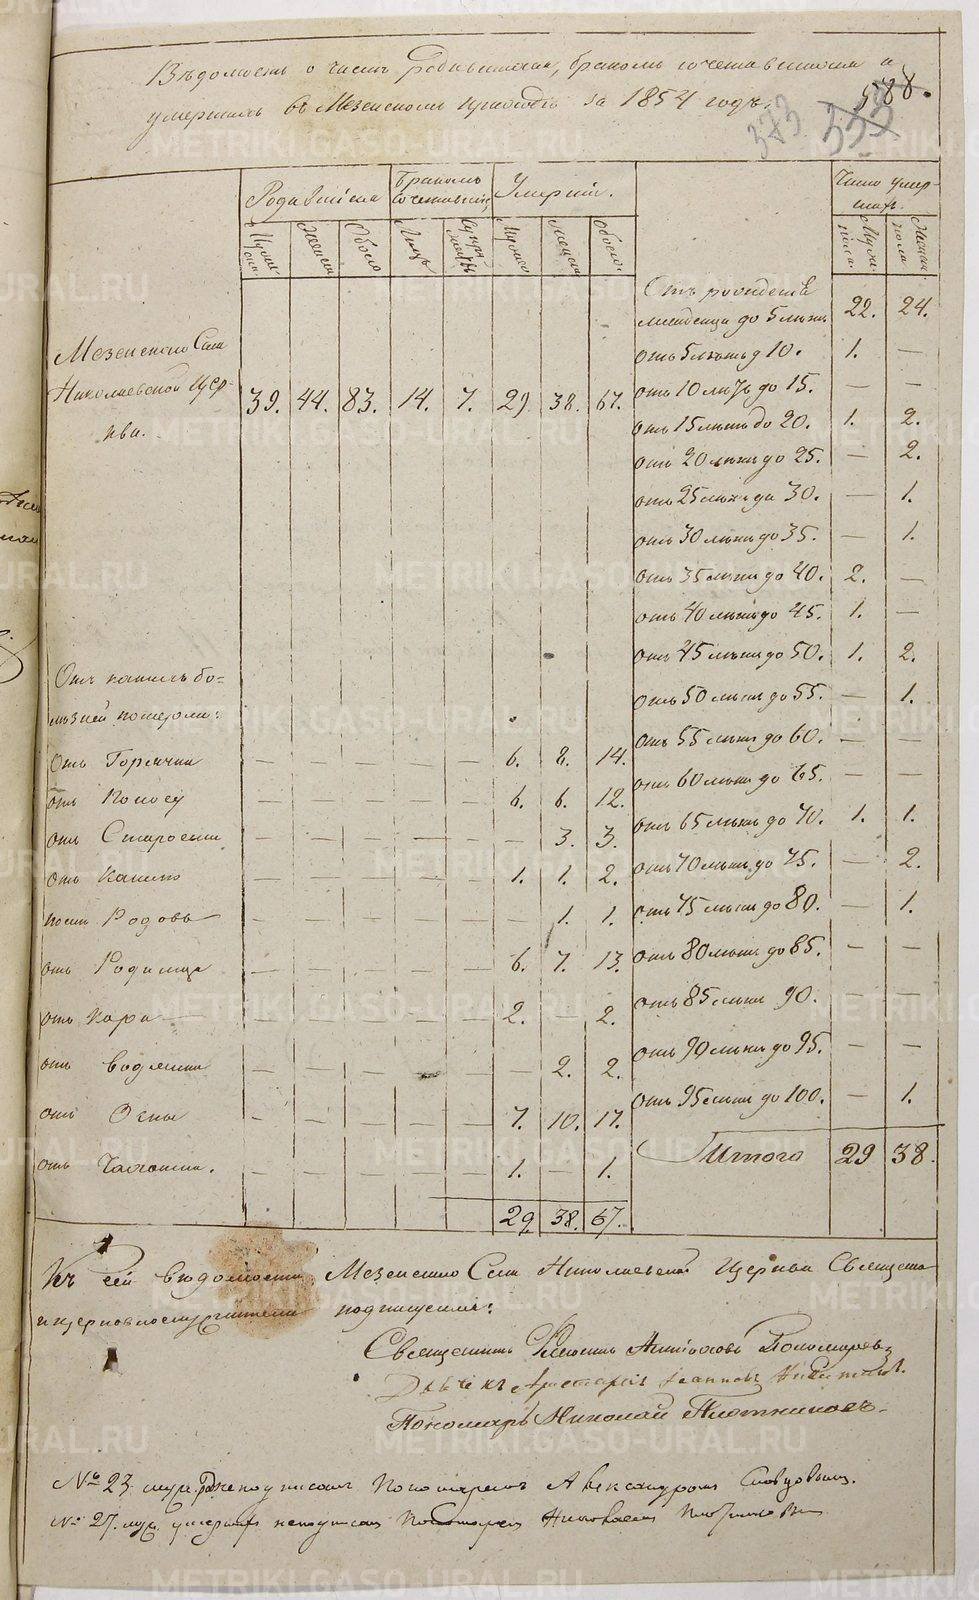 Вѣдомость о числѣ Родившихся, бракомъ сочетавшихся и
умершихъ въ Мезенскомъ приходѣ за 1854 годъ.
588.
373 333
Родившихся
Бракомъ сочетавших.
Умерших.
Число умершихъ.
Мужеск.
Женск.
Обоего
Лицъ
Супружествъ
Мужеск
Женск
Обоего.
Мужск. пола.
Женск. пола
Мезенскаго Села
Николаевской Цер-
кви.
39. 44. 83. 14. 7. 29. 38. 67.
Отъ рожденія
младенца до 5 лѣтъ 22. 24.
отъ 5 лѣтъ д 10. 1. —
отъ 10 лѣтъ до 15. — —
отъ 15 лѣтъ до 20. 1. 2.
отъ 20 лѣтъ до 25. — 2.
отъ 25 лѣтъ до 30. — 1.
отъ 30 лѣтъ до 35. — 1.
отъ 35 лѣтъ до 40. 2. —
отъ 40 лѣтъ до 45. 1. —
отъ 45 лѣтъ до 50. 1. 2.
отъ 50 лѣтъ до 55. — 1.
отъ 55 лѣтъ до 60. — —
отъ 60 лѣтъ до 65. — —
отъ 65 лѣтъ до 70. 1. 1.
отъ 70 лѣтъ до 75. — 2.
отъ 75 лѣтъ до 80. — 1.
отъ 80 лѣтъ до 85. — —
отъ 85 лѣтъ 90. — —
отъ 90 лѣтъ до 95. — —
отъ 95 лѣтъ до 100. — 1.
Итого 29 38.
Отъ какихъ бо=
лѣзней померли:
Отъ Горячки — — — — — 6. 8. 14.
отъ Поносу — — — — — 6. 6. 12.
отъ Старости — — — — — — 3. 3.
отъ Кашлю — — — — — 1. 1. 2.
послѣ Родовъ — — — — — — 1. 1.
отъ Родимца — — — — — 6. 7. 13.
отъ Кори — — — — — 2. — 2.
отъ водянки — — — — — — 2. 2.
отъ Оспы — — — — — 7. 10. 17.
отъ Чахотки. — — — — — 1. — 1.
29. 38. 67.
Къ сей вѣдомости Мезенскаго Села Николаевской Церкви Священно
и церковнослужители подписались:
Священникъ Антіоховъ Пономаревъ
Дьячекъ Аристархъ Іоанновъ Никитинъ.
Пономарь Николай Плотниковъ.
№ 23 подписалъ Пономарь Александръ Словцовъ.
№ 27. Николаем Плотниковым
METRIKI.GASO-URAL.RU